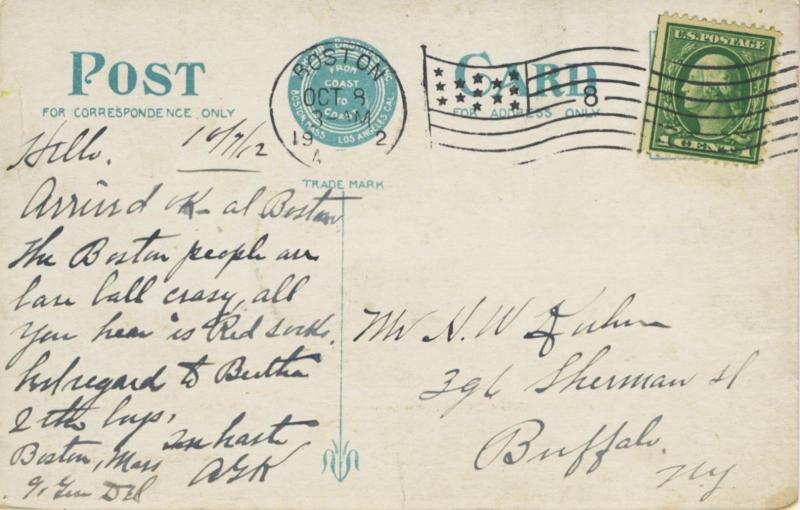 POST CARD
FOR CORRESPONDENCE ONLY
FOR ADDRESS ONLY
BROTHERS INC.
FROM
COAST
TO
COAST
BOSTON, MASS. LOS ANGELES CAL.
TRADE MARK
BOSTON
OCT 8
AM
19 2
A
8
U.S. POSTAGE
1 CENT 1
Hello. 10/7/12
Arrived OK at Boston
The Boston people are
base ball crasy, all
You hear is Red socks.
best regard to Bertha
& the boys,
In haste
Boston, Mass AGK
% Gen Del
Mr N. W
396 Sherman st
Buffalo.
N.Y.